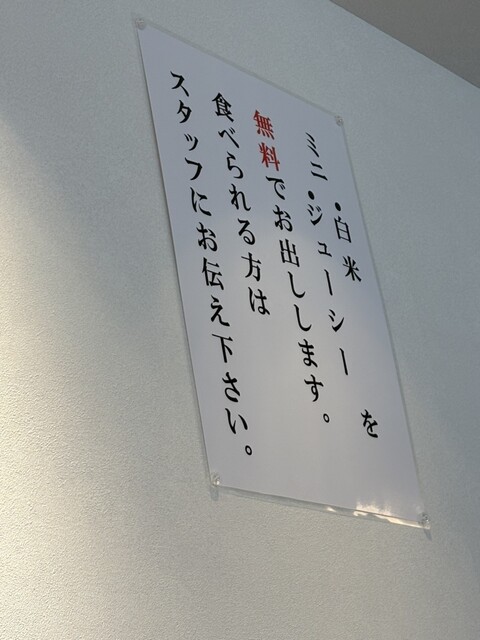 ミニ
・白米
・ジューシー
を
無料でお出しします。
食べられる方は
スタッフにお伝え下さい。